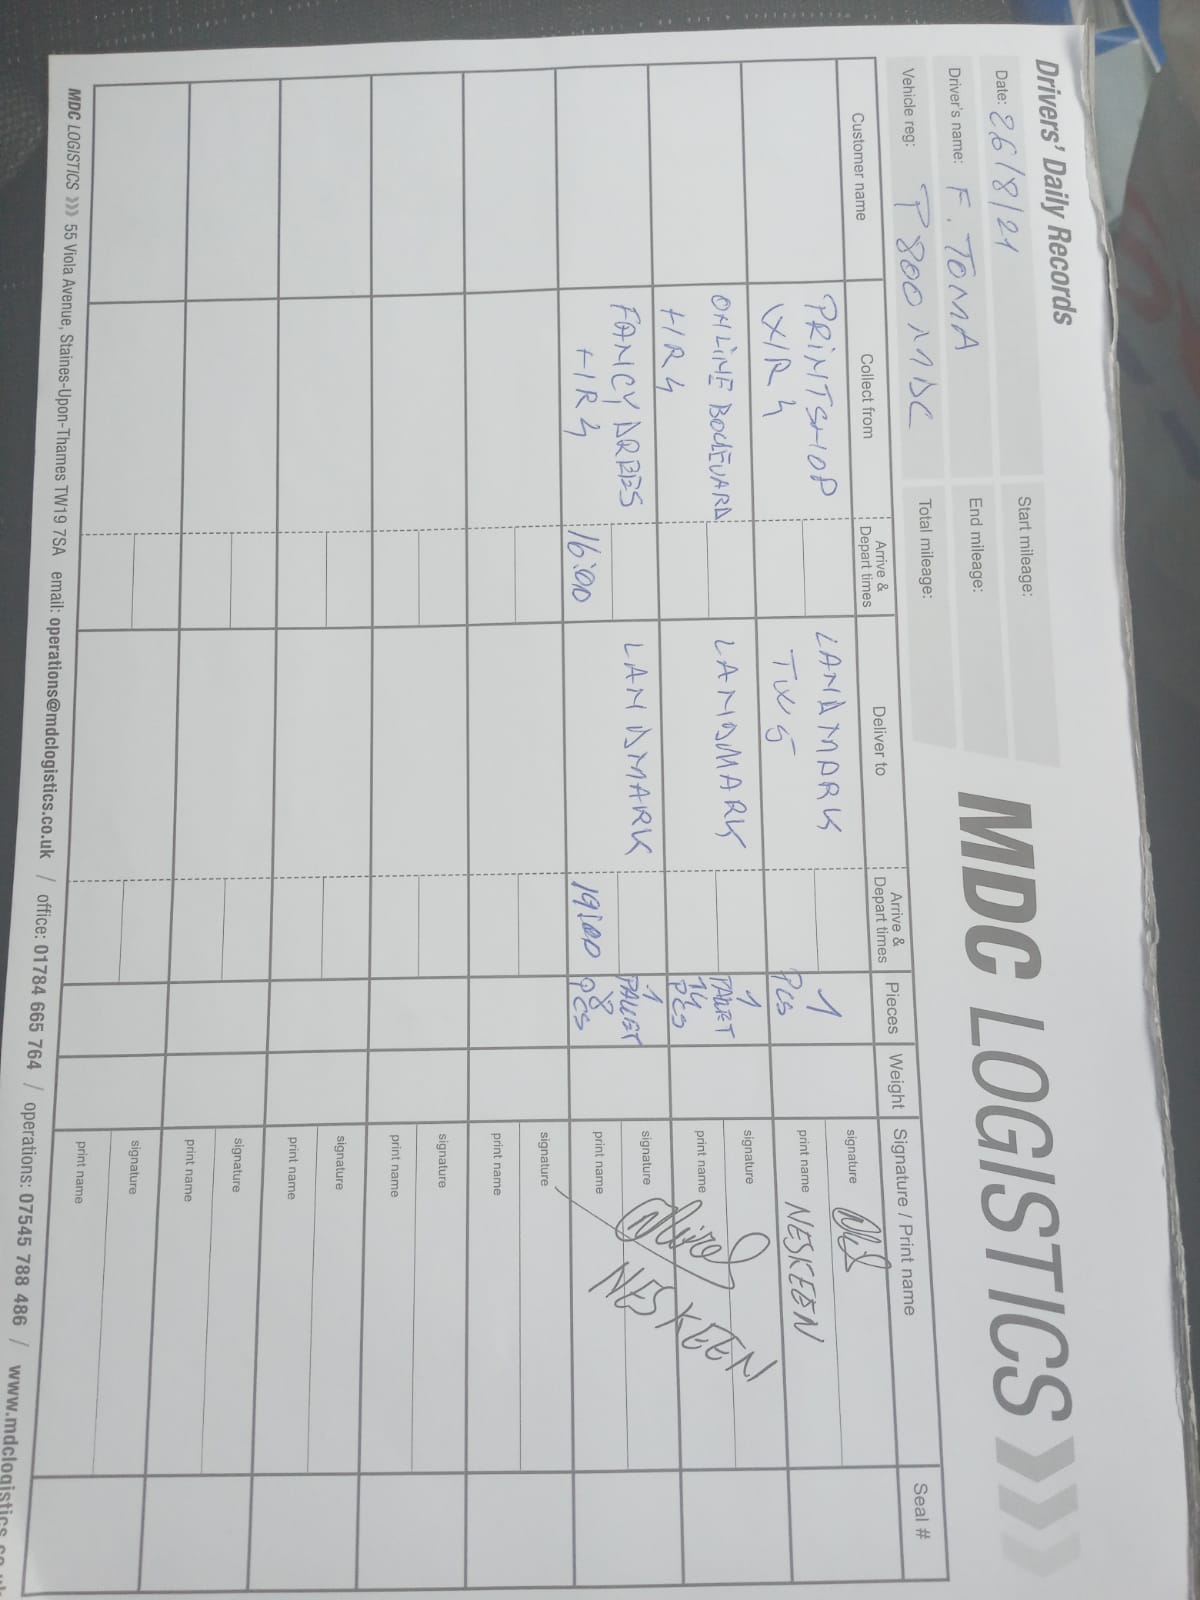 Drivers' Daily Records
MDC LOGISTICS
Date: 26/8/21
Start mileage:
Driver's name: F. TOMA
End mileage:
Vehicle reg: P800 MDC
Total mileage:
Customer name Collect from Arrive & Depart times Deliver to Arrive & Depart times Pieces Weight Signature / Print name Seal #
PRINTSHOP LANDMARK 1 signature
4 TW5 PCS print name NESKEEN
ONLINE LANDMARK 1 PALLET signature
4 14 PCS print name
FANCY LANDMARK 1 PALLET signature
4 16:00 19:00 8 PCS print name NESKEEN
signature
print name
signature
print name
signature
print name
signature
print name
signature
print name
MDC LOGISTICS >>> 55 Viola Avenue, Staines-Upon-Thames TW19 7SA email: operations@mdclogistics.co.uk / office: 01784 665 764 / operations: 07545 788 486 / www.mdclogistics.co.uk